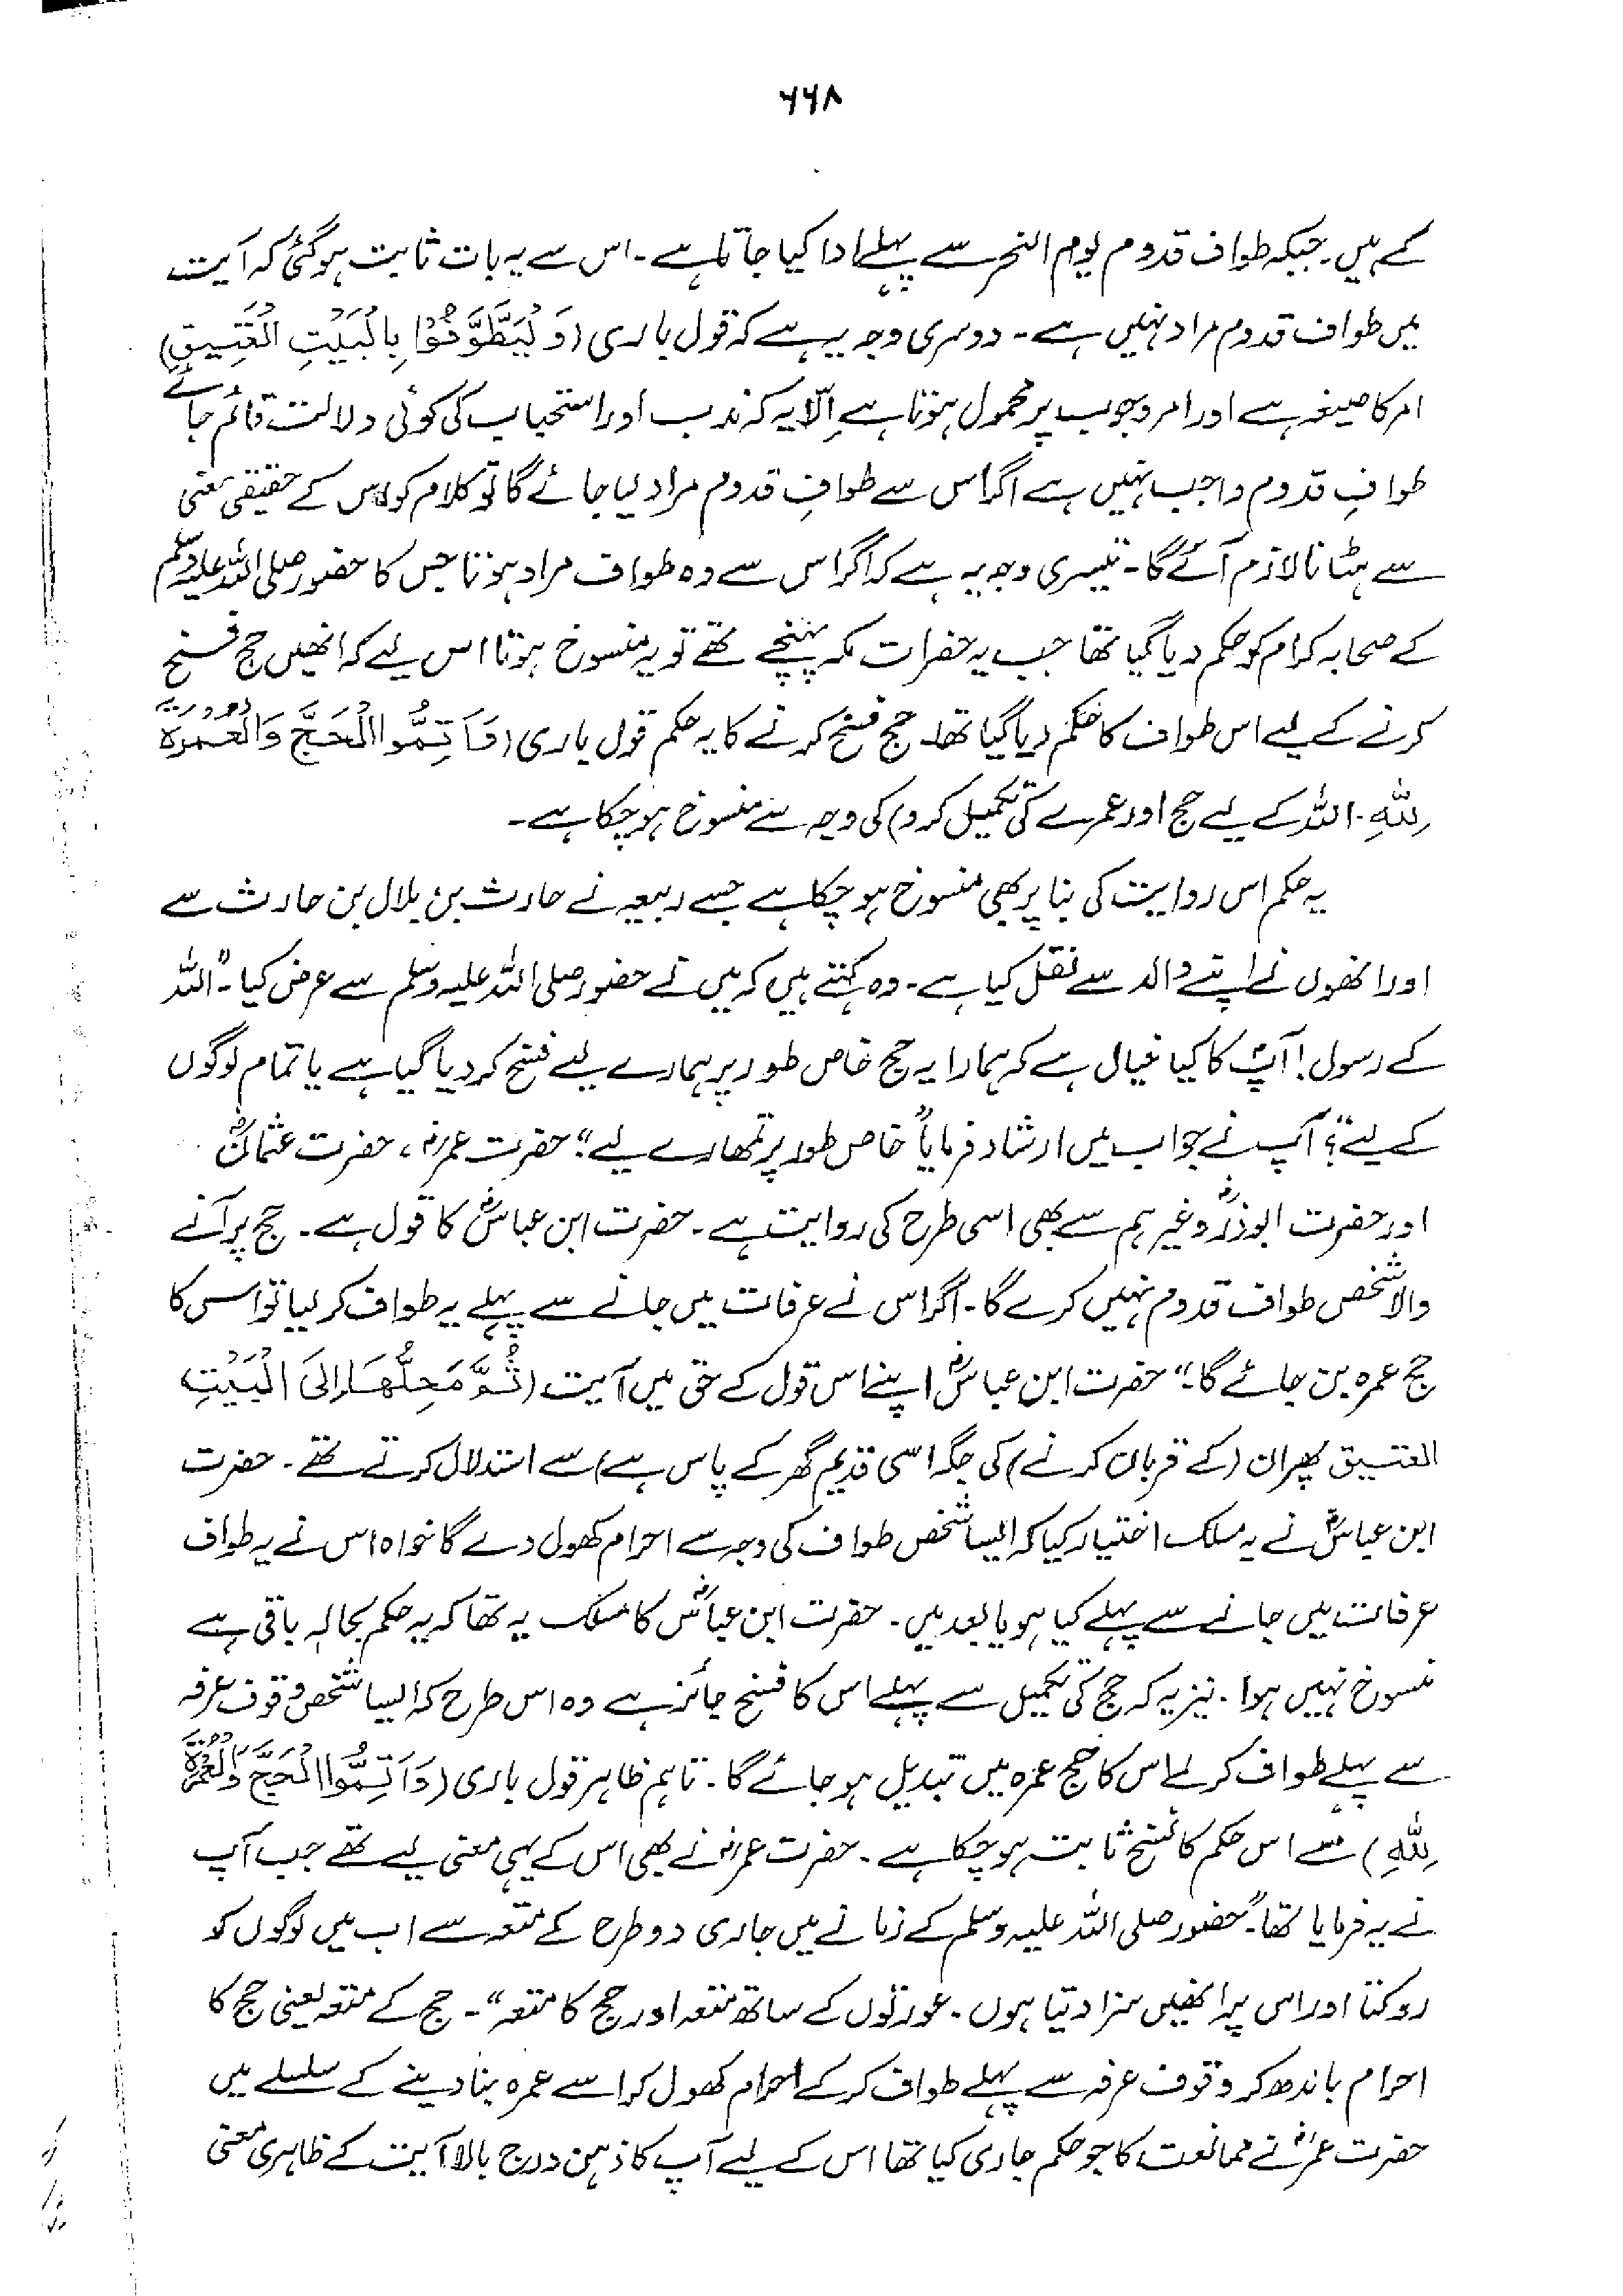 ۶۶۸
کے ہیں۔ جبکہ طواف قدوم یوم النحر سے پہلے ادا کیا جاتا ہے۔ اس سے یہ بات ثابت ہوگئی کہ آیت
میں طواف قدوم مراد نہیں ہے۔ دوسری وجہ یہ ہے کہ قول باری (وَلْيَطَّوَّفُوْا بِالْبَيْتِ الْعَتِيقِ)
امر کا صیغہ ہے اور امر وجوب پر محمول ہوتا ہے اِلّا یہ کہ ندب اور استحباب کی کوئی دلالت قائم جائے
طوافِ قدوم واجب نہیں ہے اگر اس سے طوافِ قدوم مراد لیا جائے گا تو کلام کو اس کے حقیقی معنی
سے ہٹانا لازم آئے گا۔ تیسری وجہ یہ ہے کہ اگر اس سے وہ طواف مراد ہوتا جس کا حضور صلی اللہ علیہ وسلم
کے صحابہ کرام کو حکم دیا گیا تھا جب یہ حضرات مکہ پہنچے تھے تو یہ منسوخ ہوتا اس لیے کہ انھیں حج فسخ
کرنے کے لیے اس طواف کا حکم دیا گیا تھا۔ حج فسخ کرنے کا یہ حکم قول باری (فَاَتِمُّوا الْحَجَّ وَالْعُمْرَةَ
لِلّٰهِ۔ اللہ کے لیے حج اور عمرے کی تکمیل کرو) کی وجہ سے منسوخ ہو چکا ہے۔
یہ حکم اس روایت کی بنا پر بھی منسوخ ہو چکا ہے جسے ربیعہ نے حارث بن بلال بن حارث سے
اور انھوں نے اپنے والد سے نقل کیا ہے۔ وہ کہتے ہیں کہ میں نے حضور صلی اللہ علیہ وسلم سے عرض کیا۔ "اللہ
کے رسول! آپؐ کا کیا خیال ہے کہ ہمارا یہ حج خاص طور پر ہمارے لیے فسخ کر دیا گیا ہے یا تمام لوگوں
کے لیے"؟ آپ نے جواب میں ارشاد فرمایا "خاص طور پر تمھارے لیے"؛ حضرت عمرؓ، حضرت عثمانؓ
اور حضرت ابوذرؓ وغیرہم سے بھی اسی طرح کی روایت ہے۔ حضرت ابن عباسؓ کا قول ہے۔ حج پر آنے
والا شخص طواف قدوم نہیں کرے گا۔ اگر اس نے عرفات میں جانے سے پہلے یہ طواف کر لیا تو اس کا
حج عمرہ بن جائے گا۔" حضرت ابن عباسؓ اپنے اس قول کے حق میں آیت (ثُمَّ مَحِلُّهَا اِلَى الْبَيْتِ
العتیق پھر ان (کے قربان کرنے) کی جگہ اسی قدیم گھر کے پاس ہے) سے استدلال کرتے تھے۔ حضرت
ابن عباسؓ نے یہ مسلک اختیار کیا کہ ایسا شخص طواف کی وجہ سے احرام کھول دے گا خواہ اس نے یہ طواف
عرفات میں جانے سے پہلے کیا ہو یا بعد میں۔ حضرت ابن عباسؓ کا مسلک یہ تھا کہ یہ حکم بحالہ باقی ہے
منسوخ نہیں ہوا۔ نیز یہ کہ حج کی تکمیل سے پہلے اس کا فسخ جائز ہے وہ اس طرح کہ ایسا شخص وقوف عرفہ
سے پہلے طواف کر لے اس کا حج عمرہ میں تبدیل ہو جائے گا۔ تاہم ظاہر قول باری (وَاَتِمُّوا الْحَجَّ وَالْعُمْرَةَ
لِلّٰهِ) سے اس حکم کا نسخ ثابت ہو چکا ہے۔ حضرت عمرؓ نے بھی اس کے یہی معنی لیے تھے جب آپ
نے یہ فرمایا تھا۔ "حضور صلی اللہ علیہ وسلم کے زمانے میں جاری دو طرح کے متعہ سے اب میں لوگوں کو
روکتا اور اس پر انھیں سزا دیتا ہوں۔ عورتوں کے ساتھ متعہ اور حج کا متعہ"۔ حج کے متعہ یعنی حج کا
احرام باندھ کر وقوف عرفہ سے پہلے طواف کر کے احرام کھول کر اسے عمرہ بنا دینے کے سلسلے میں
حضرت عمرؓ نے ممانعت کا جو حکم جاری کیا تھا اس کے لیے آپ کا ذہن درج بالا آیت کے ظاہری معنی